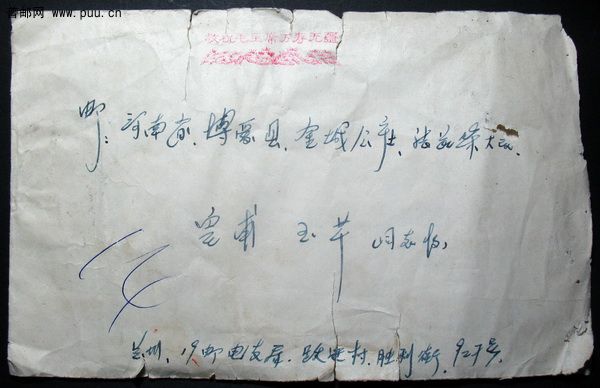 著邮网 www.puu.cn
敬祝毛主席万寿无疆
邮:河南省、博爱县、金城公社、张茹集大队
皇甫 玉芹 同志收
兰州、19邮电支局、跃进村、胜利街、929号